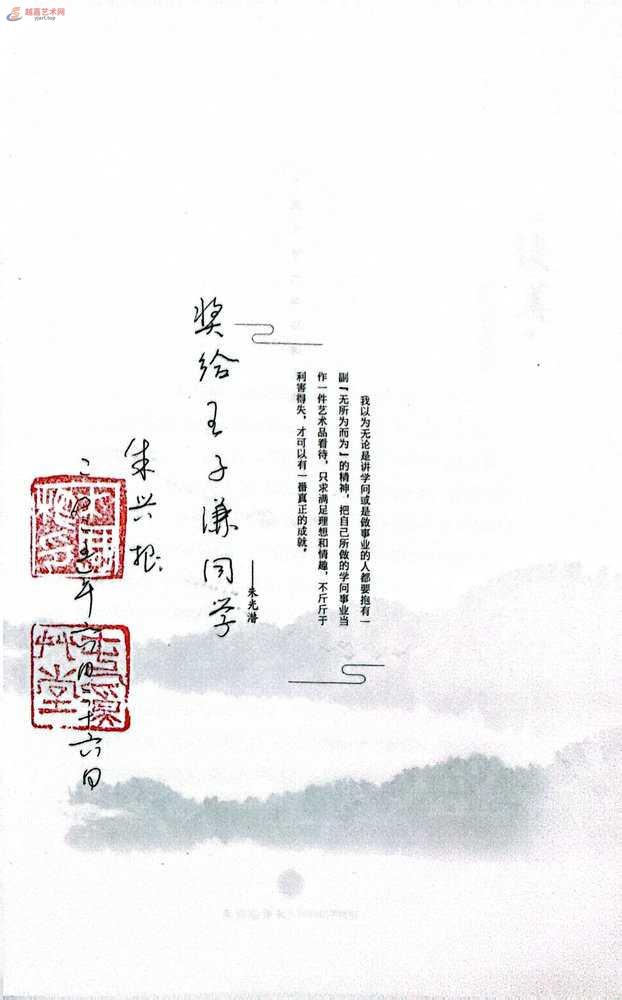 越嘉艺术网
yjart.top
我以为无论是讲学问或是做事业的人都要抱有一
副“无所为而为”的精神，把自己所做的学问事业当
作一件艺术品看待，只求满足理想和情趣，不斤斤于
利害得失，才可以有一番真正的成就。
——朱光潜
奖给王子谦同学
朱兴根
二〇一五年六月二十六日